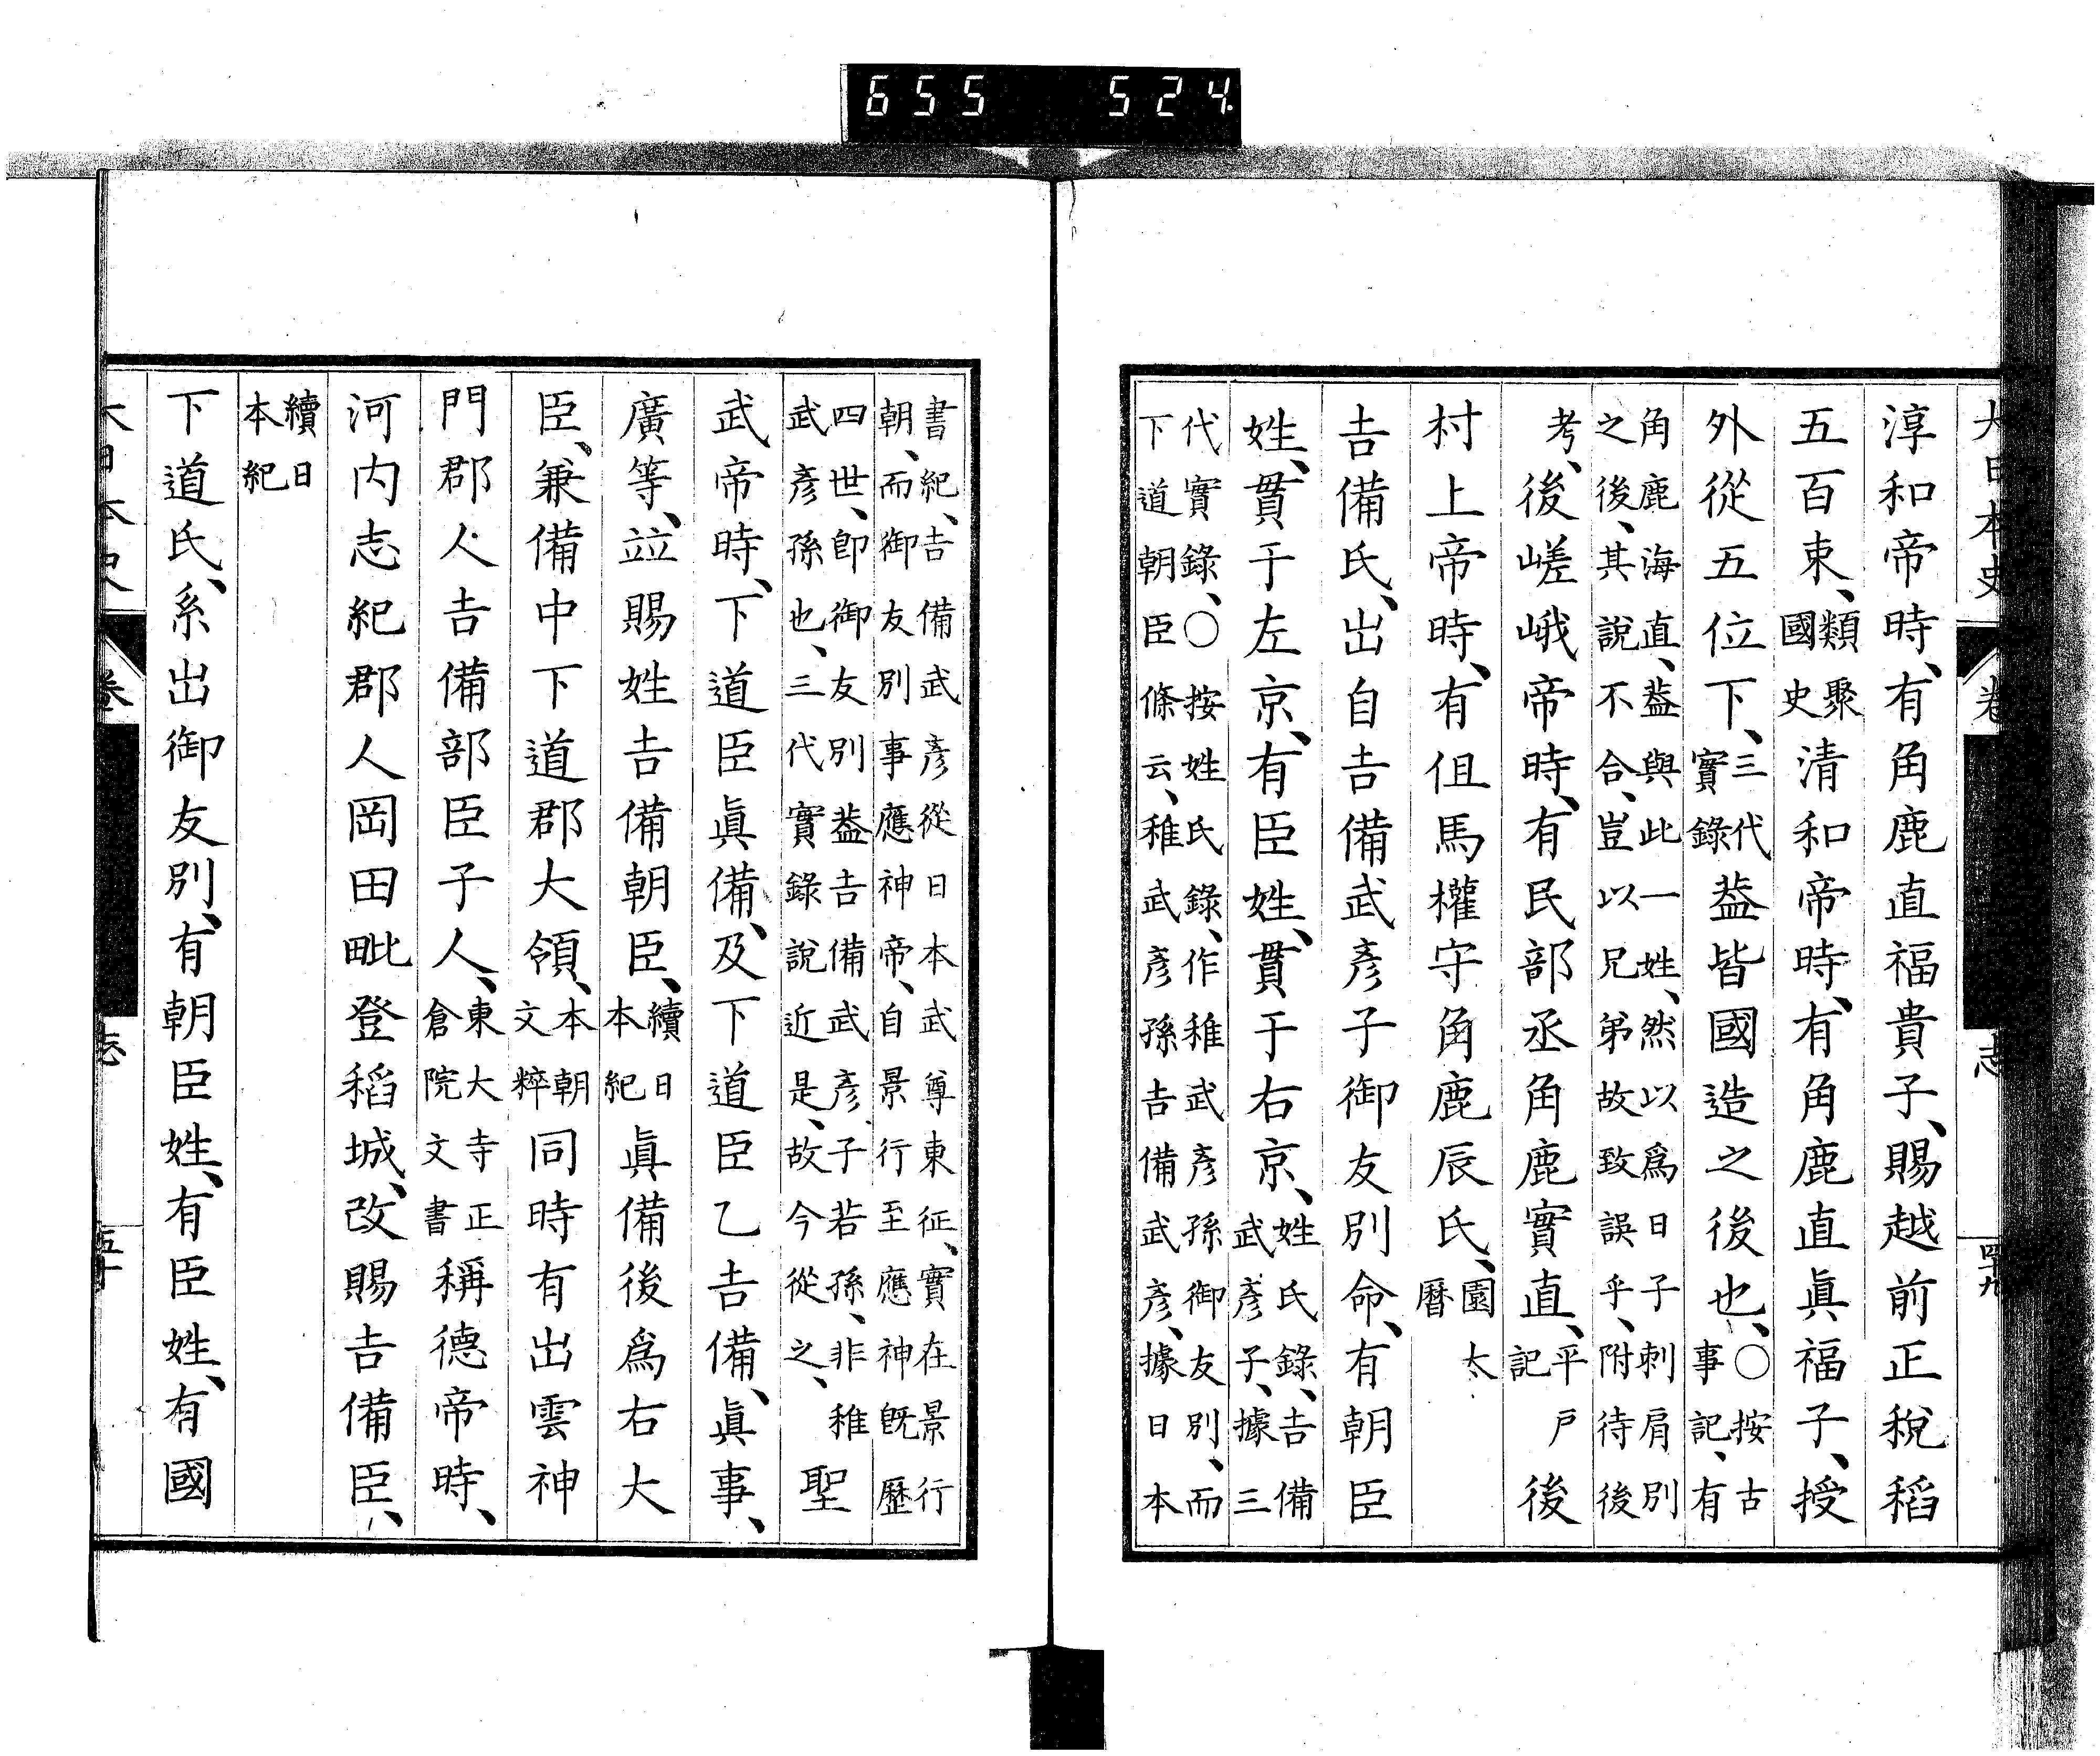 大日本史 卷 志 四十九
淳和帝時、有角鹿直福貴子、賜越前正稅稻
五百束、類聚國史清和帝時、有角鹿直眞福子、授
外從五位下、三代實錄蓋皆國造之後也、○按古事記、有
角鹿海直、蓋與此一姓、然以爲日子刺肩別
之後、其說不合、豈以兄弟故致誤乎、附待後
考、後嵯峨帝時、有民部丞角鹿實直、平戶記後
村上帝時、有伹馬權守角鹿辰氏、園太曆
吉備氏、出自吉備武彥子御友別命、有朝臣
姓、貫于左京、有臣姓、貫于右京、姓氏錄、吉備武彥子、據三
代實錄、○按姓氏錄、作稚武彥孫御友別、而
下道朝臣條云、稚武彥孫吉備武彥、據日本
書紀、吉備武彥從日本武尊東征、實在景行
朝、而御友別事應神帝、自景行至應神旣歷
四世、卽御友別蓋吉備武彥子若孫、非稚
武彥孫也、三代實錄說近是、故今從之、聖
武帝時、下道臣眞備、及下道臣乙吉備、眞事、
廣等、竝賜姓吉備朝臣、續日本紀眞備後爲右大
臣、兼備中下道郡大領、本朝文粹同時有出雲神
門郡人吉備部臣子人、東大寺正倉院文書稱德帝時、
河内志紀郡人岡田毗登稻城、改賜吉備臣、
續日本紀
下道氏、系出御友別、有朝臣姓、有臣姓、有國
大日本史 卷 志 五十
655 524